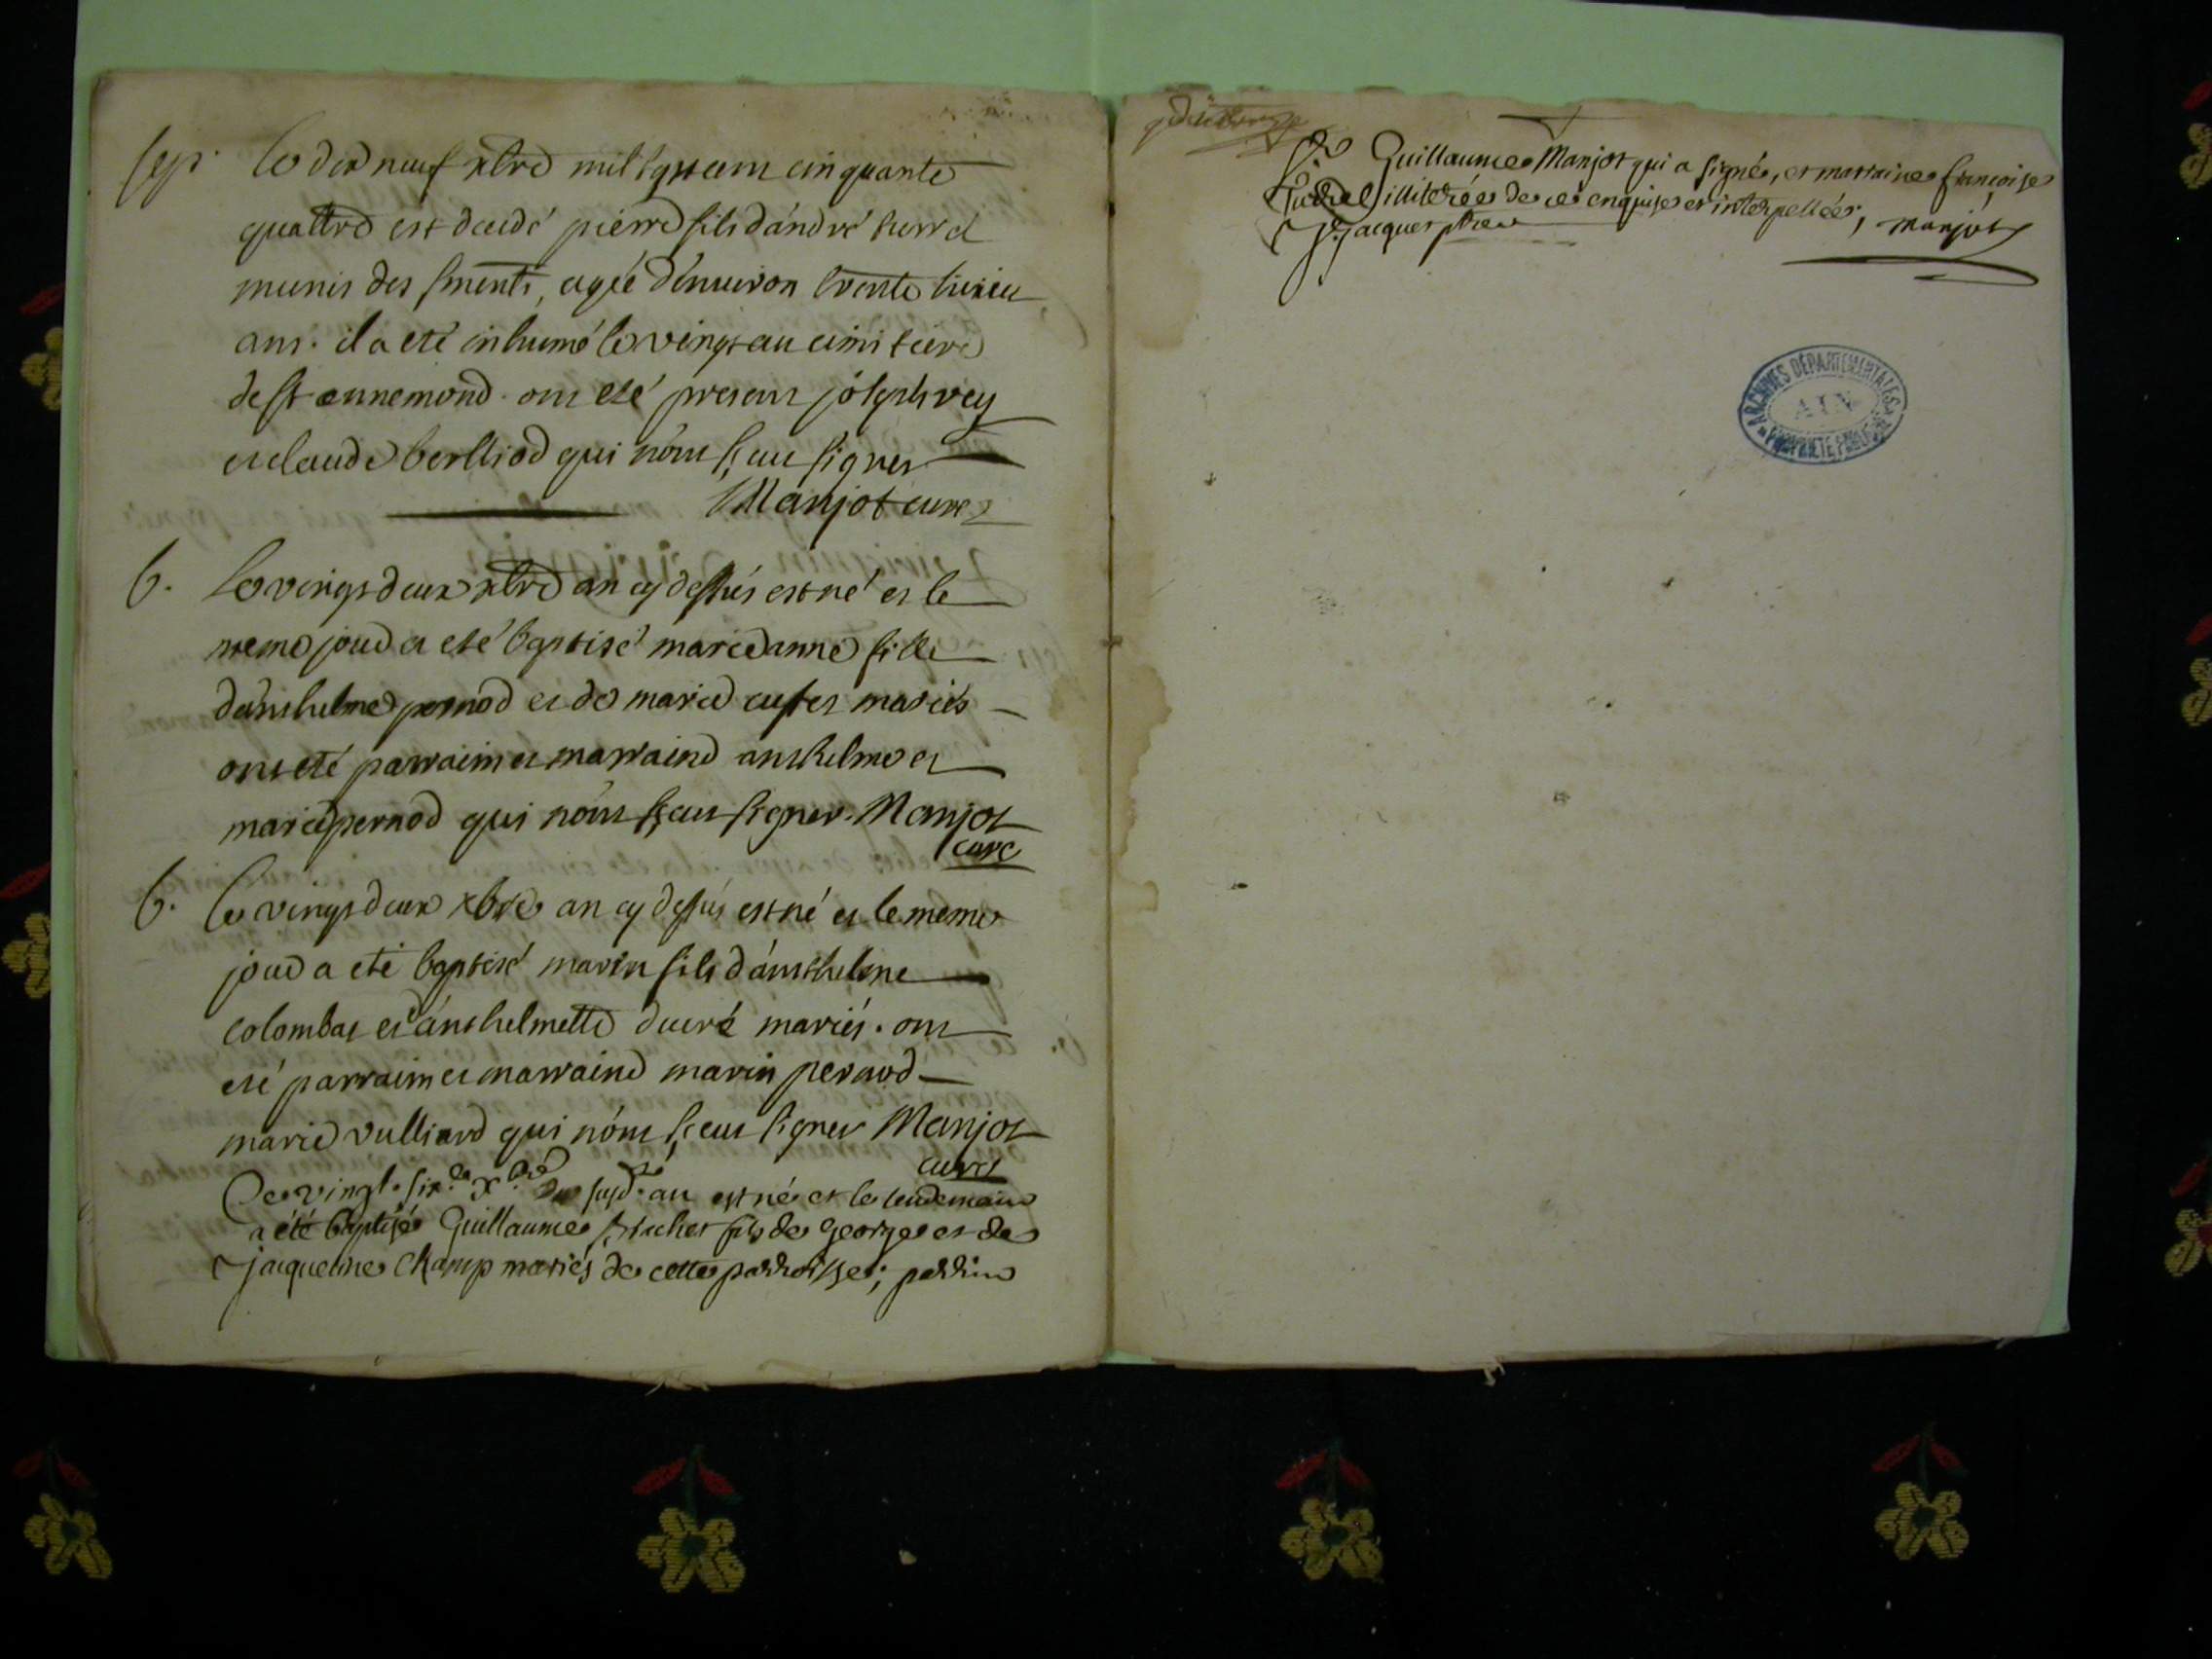 sep. le dix neuf xbre mil sept cent cinquante
quattre est decedé pierre fils d'andré
munis des sments, agée d'environ trente huict
ans. il a eté inhumé le vingt au cimitiere
de st ennemond. ont eté presens joseph rey
et claude berlliod qui n'ont sçeu signer
Manjot curé
b. le vingt deux xbre an cy dessus est né et le
meme jour a eté baptisé marie anne fille
d'anthelme pernod et de marie mariés
ont eté parrain et marraine anthelme et
marie pernod qui n'ont sçeu signer. Manjot
curé
b. le vingt deux xbre an cy dessus est né et le meme
jour a eté baptisé marin fils d'anthelme
colombat et d'anthelmette ducré mariés. ont
eté parrain et marraine marin pernod
marie vulliard qui n'ont sçeu signer Manjot
curé
Le vingt six.e xbre du susd. an est né et le lendemain
a été baptisé Guillaume fils de george et de
jacqueline Champ mariés de cette parroisse; parrin
Sr Guillaume Manjot qui a signé, et marraine françoise
illiterée de ce enquise et interpellée;
J. jacques ptre manjot
ARCHIVES DÉPARTEMENTALES
AIN
PROPRIÉTÉ PUBLIQUE